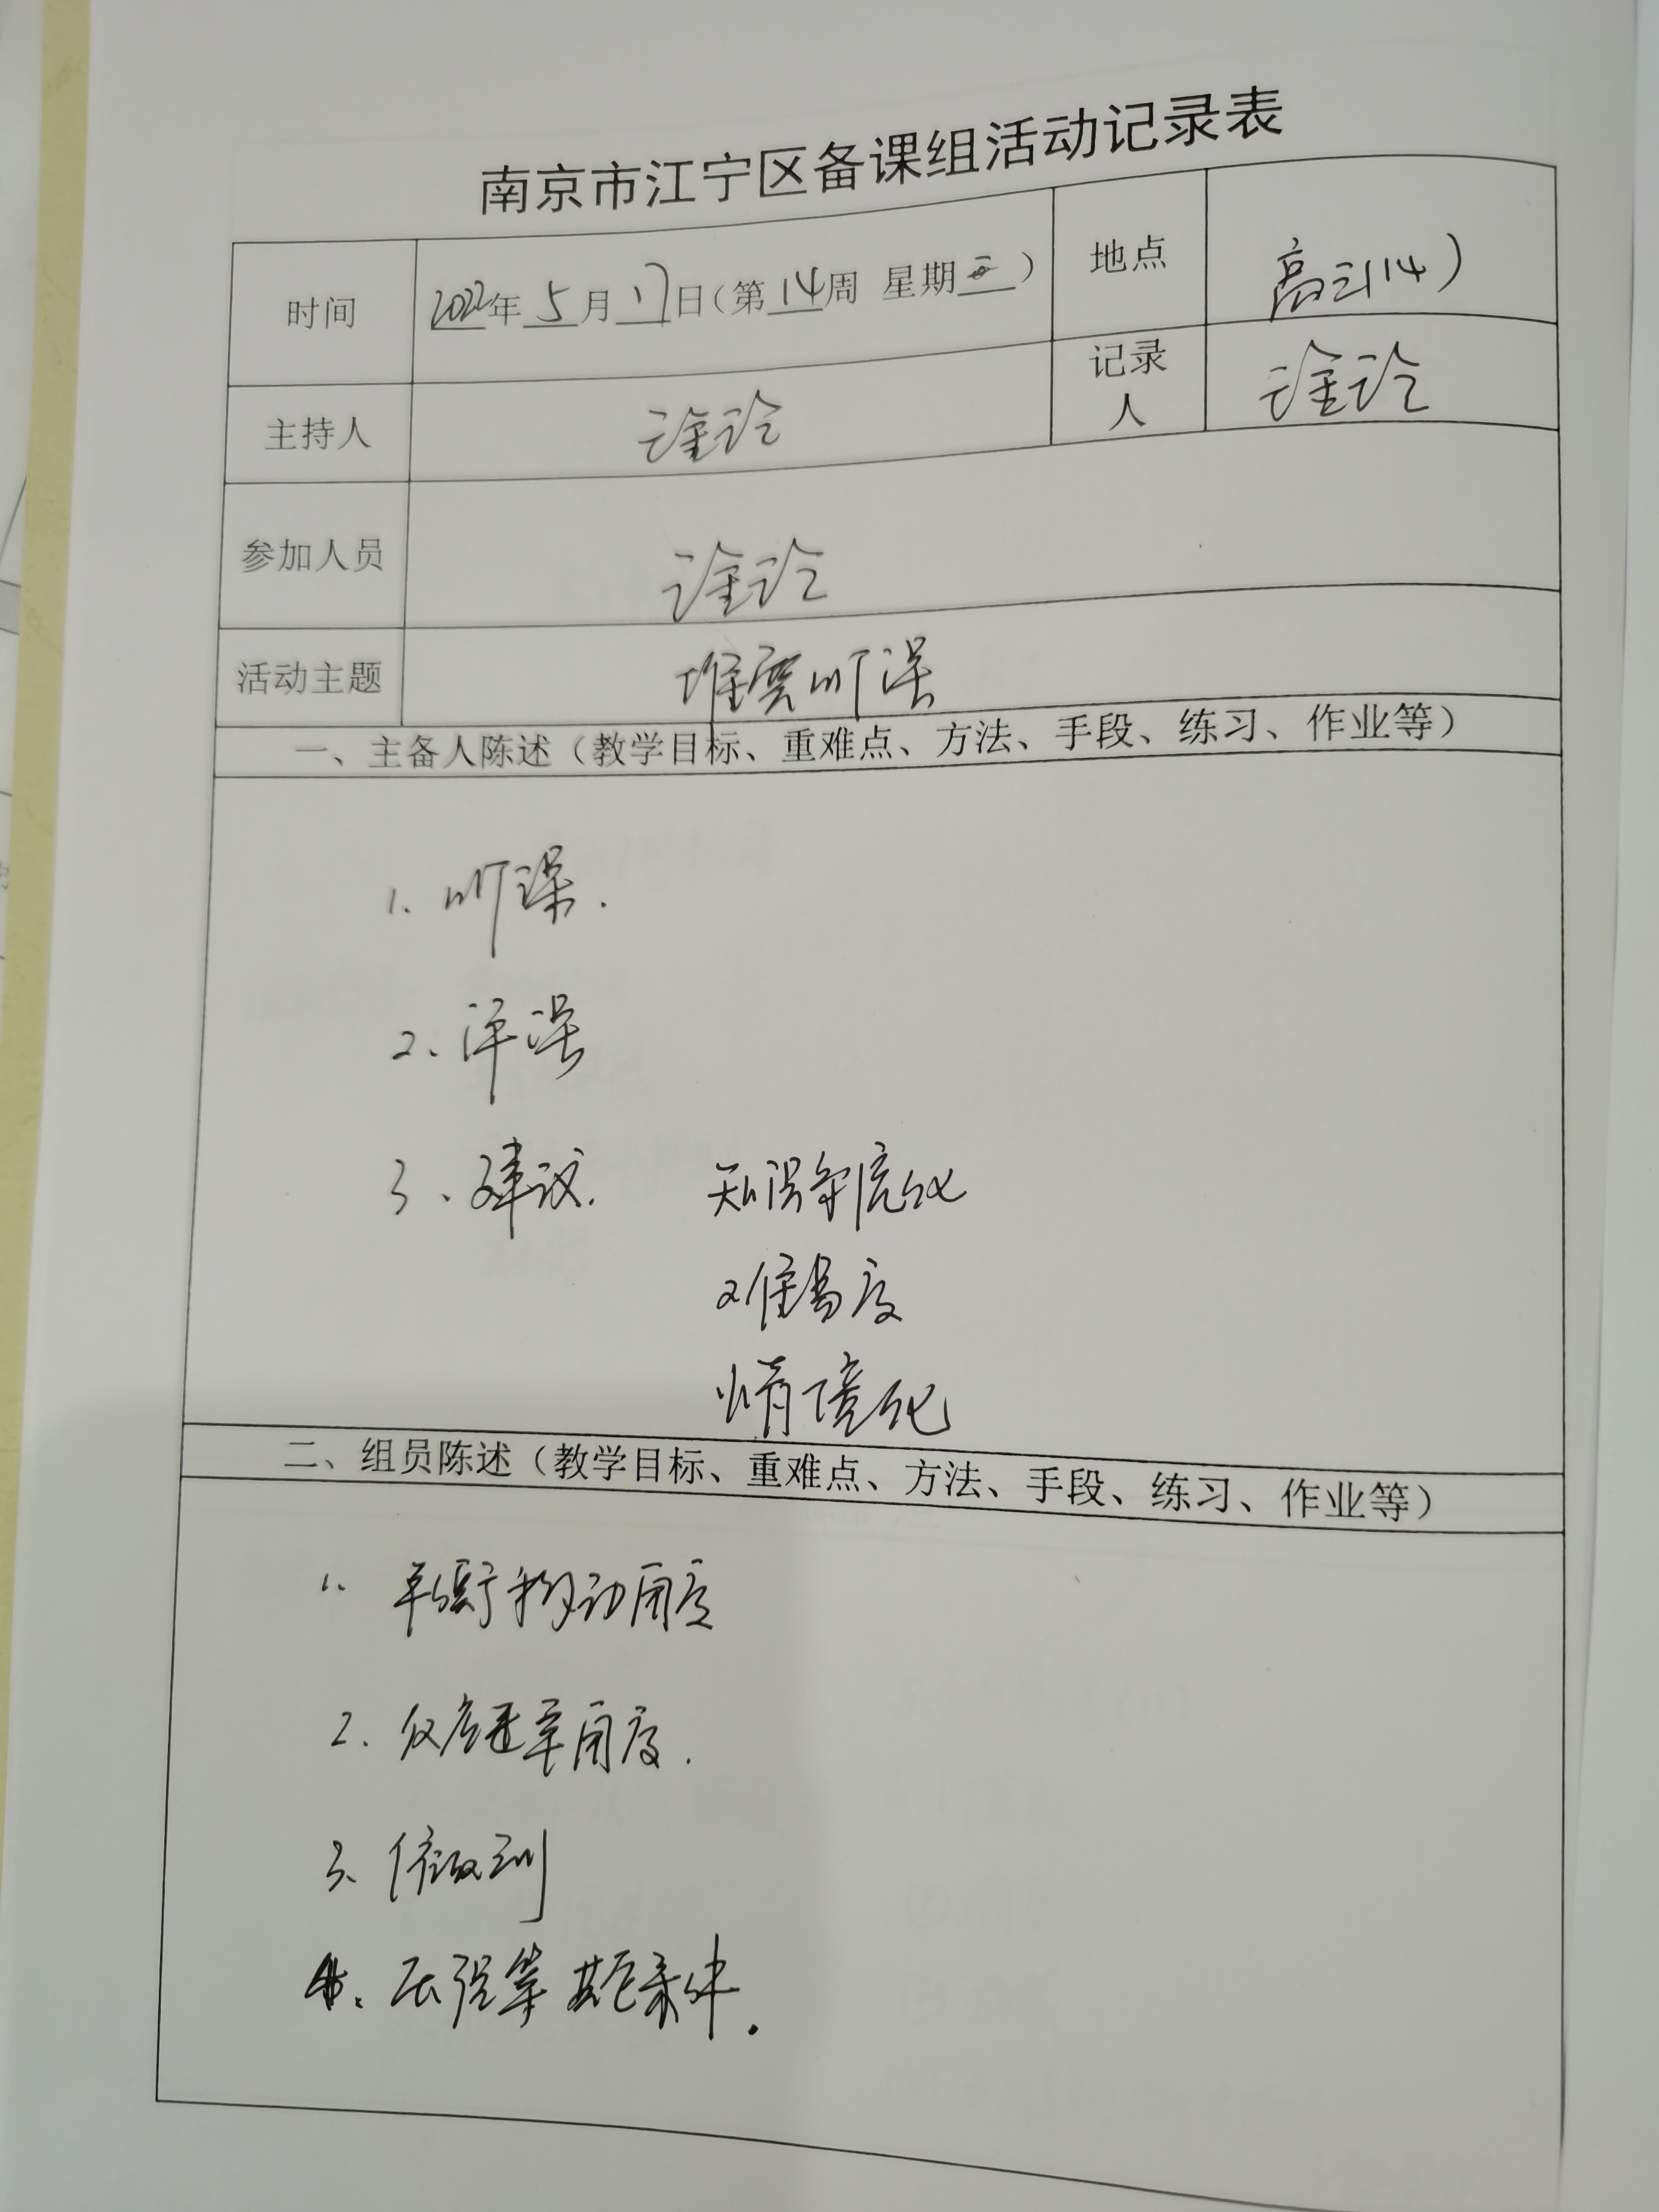 南京市江宁区备课组活动记录表
时间 2022年5月17日(第14周 星期二) 地点 高三(14)
主持人 记录人
参加人员
活动主题 听课
一、主备人陈述(教学目标、重难点、方法、手段、练习、作业等)
1. 听课.
2、评课
3、建议. 知识等应化
难易度
情境化
二、组员陈述(教学目标、重难点、方法、手段、练习、作业等)
1. 平衡移动角度
2. 反应速率角度.
3、催化剂
4. 压强等其它条件.